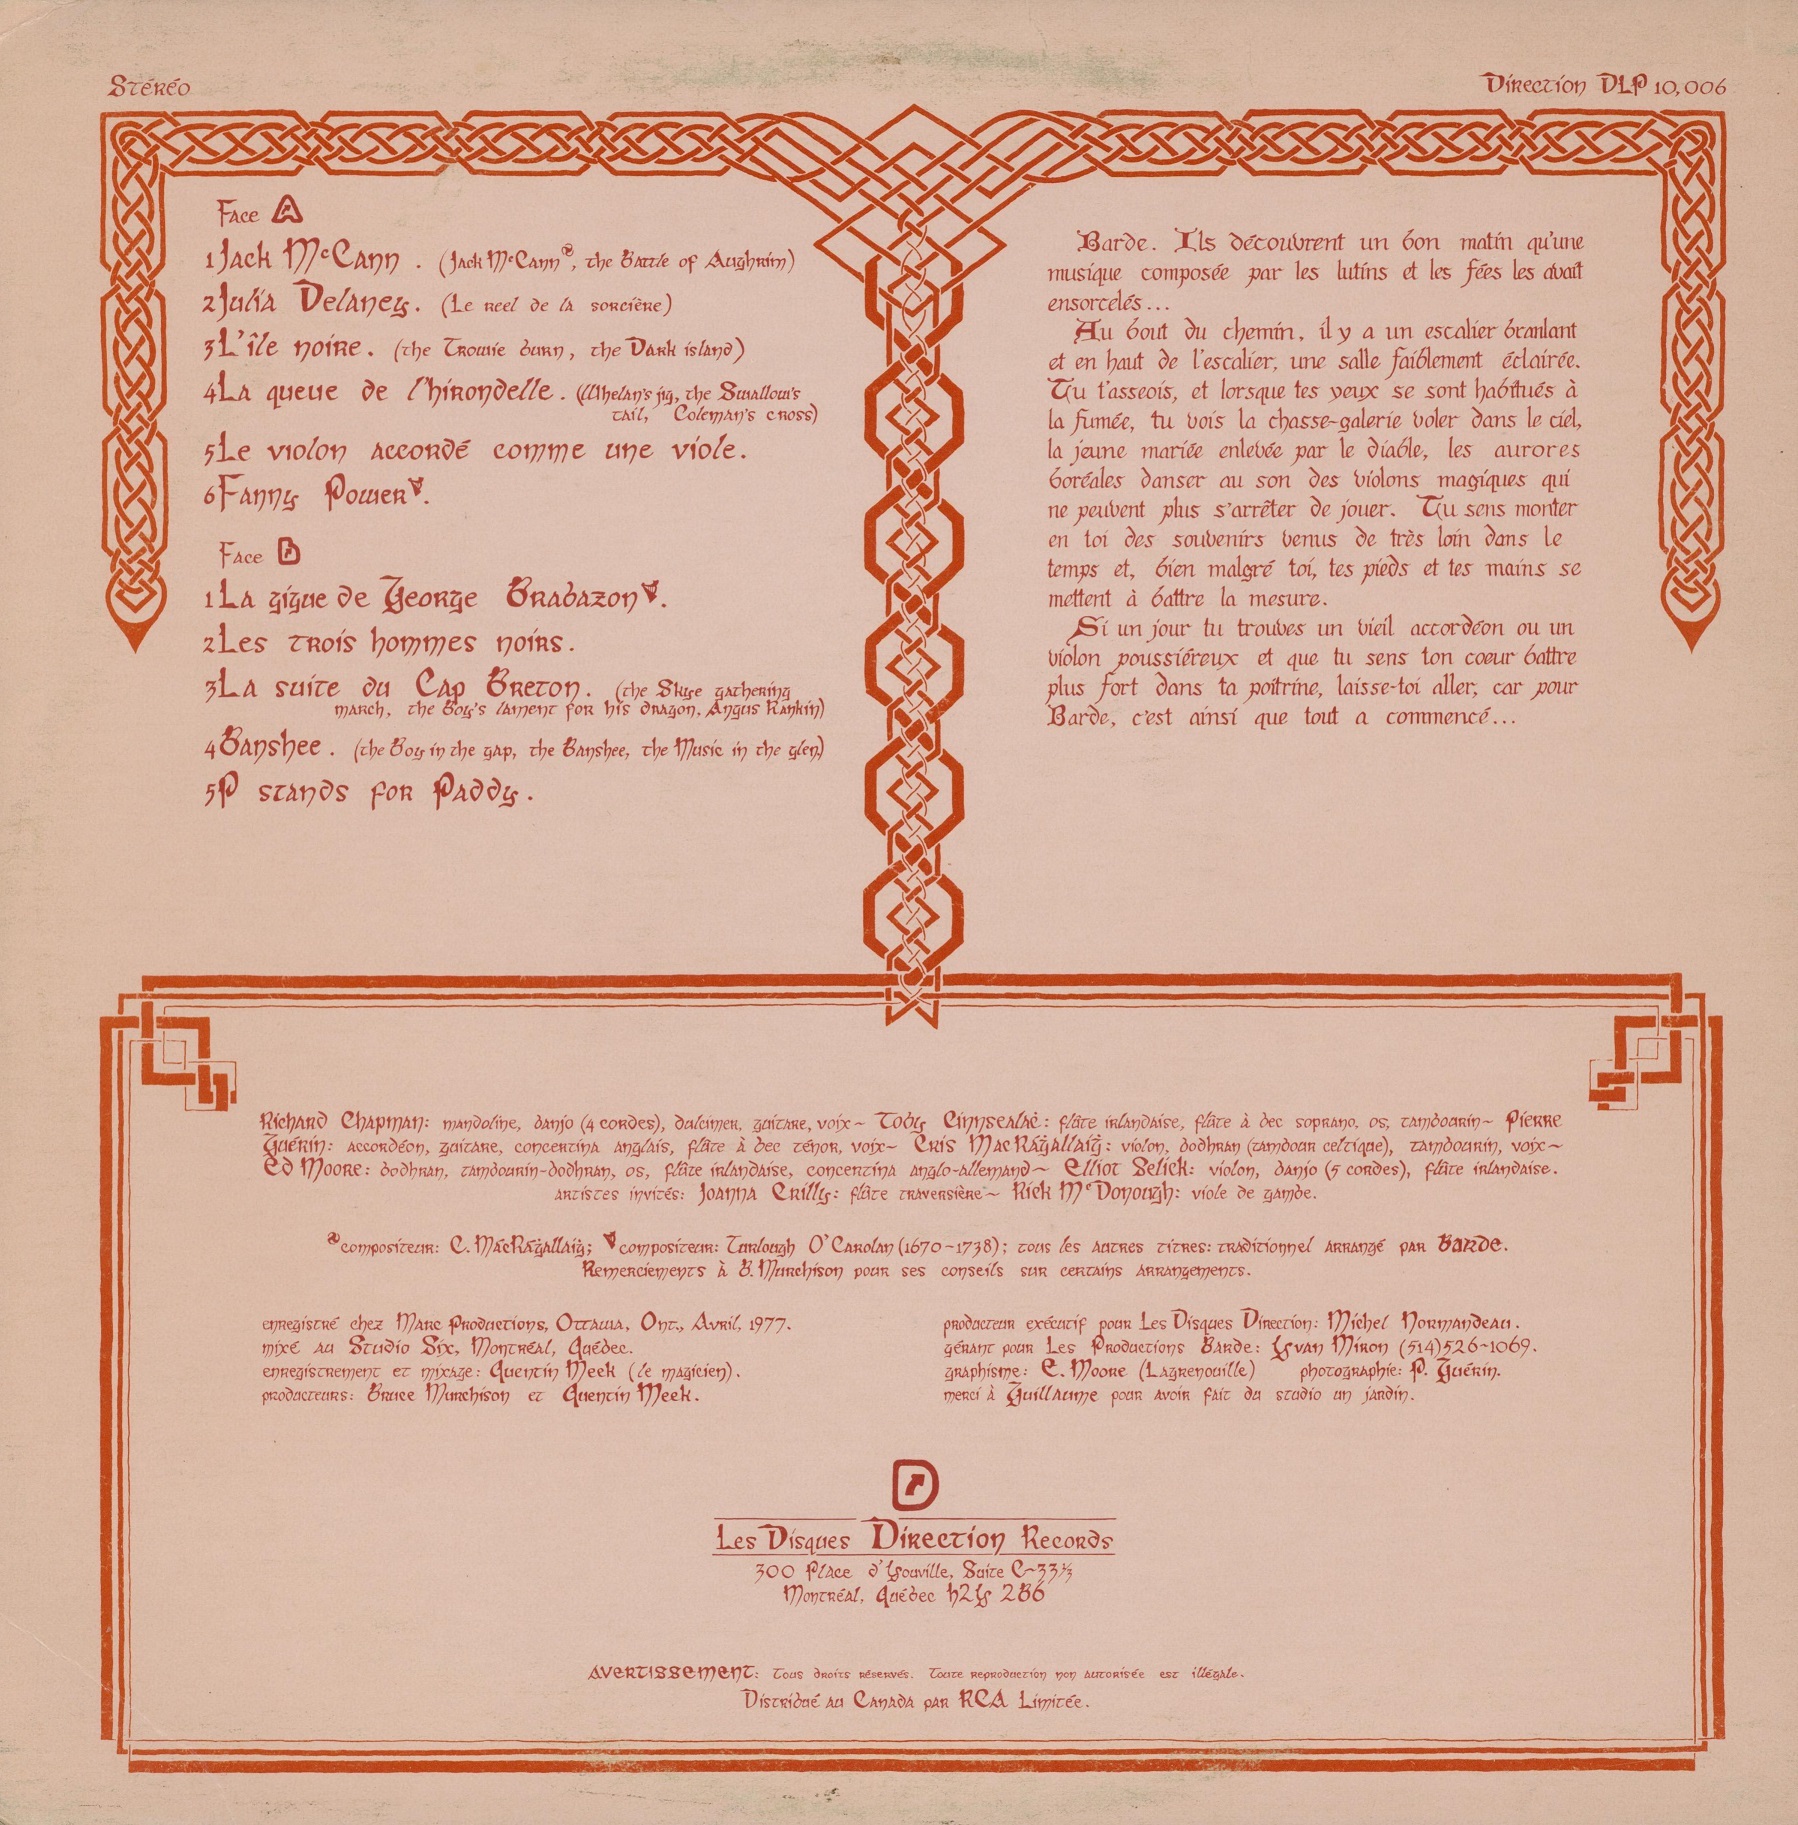 Stéréo
Direction DLP 10,006
Face A
1 Jack McCann . (Jack McCann, the Battle of Aughrim)
2 Julia Delaney. (Le reel de la sorcière)
3 L'île noire. (the Trowie burn, the Dark island)
4 La queue de l'hirondelle. (Whelan's jig, the Swallow's
tail, Coleman's cross)
5 Le violon accordé comme une viole.
6 Fanny Power.
Face B
1 La gigue de George Brabazon.
2 Les trois hommes noirs.
3 La suite du Cap Breton. (the Skye gathering
march, the Boy's lament for his dragon, Angus Rankin)
4 Banshee. (the Boy in the gap, the Banshee, the Music in the glen)
5 P stands for Paddy.
Barde. Ils découvrent un bon matin qu'une
musique composée par les lutins et les fées les avait
ensorcelés...
Au bout du chemin, il y a un escalier branlant
et en haut de l'escalier, une salle faiblement éclairée.
Tu t'asseois, et lorsque tes yeux se sont habitués à
la fumée, tu vois la chasse-galerie voler dans le ciel,
la jeune mariée enlevée par le diable, les aurores
boréales danser au son des violons magiques qui
ne peuvent plus s'arrêter de jouer. Tu sens monter
en toi des souvenirs venus de très loin dans le
temps et, bien malgré toi, tes pieds et tes mains se
mettent à battre la mesure.
Si un jour tu trouves un vieil accordéon ou un
violon poussiéreux et que tu sens ton coeur battre
plus fort dans ta poitrine, laisse-toi aller, car pour
Barde, c'est ainsi que tout a commencé...
Richard Chapman: mandoline, banjo (4 cordes), dulcimer, guitare, voix ~ Toby Cinnsealac: flûte irlandaise, flûte à bec soprano, os, tambourin ~ Pierre
Guérin: accordéon, guitare, concertina anglais, flûte à bec ténor, voix ~ Cris MacRáġallaiġ: violon, bodhran (tambour celtique), tambourin, voix ~
Ed Moore: bodhran, tambourin-bodhran, os, flûte irlandaise, concertina anglo-allemand ~ Elliot Selick: violon, banjo (5 cordes), flûte irlandaise.
artistes invités: Joanna Crilly: flûte traversière ~ Rick McDonough: viole de gambe.
compositeur: C. MacRáġallaiġ; compositeur: Turlough O'Carolan (1670-1738); tous les autres titres: traditionnel arrangé par Barde.
Remerciements à B. Murchison pour ses conseils sur certains arrangements.
enregistré chez Marc Productions, Ottawa, Ont., Avril, 1977.
mixé au Studio Six, Montréal, Québec.
enregistrement et mixage: Quentin Meek (le magicien).
producteurs: Bruce Murchison et Quentin Meek.
producteur exécutif pour Les Disques Direction: Michel Normandeau.
gérant pour Les Productions Barde: Yvan Miron (514) 526-1069.
graphisme: E. Moore (Lagrenouille) photographie: P. Guérin.
merci à Guillaume pour avoir fait du studio un jardin.
Les Disques Direction Records
300 Place d'Youville, Suite C-33⅓
Montréal, Québec H2Y 2B6
Avertissement: Tous droits réservés. Toute reproduction non autorisée est illégale.
Distribué au Canada par RCA Limitée.